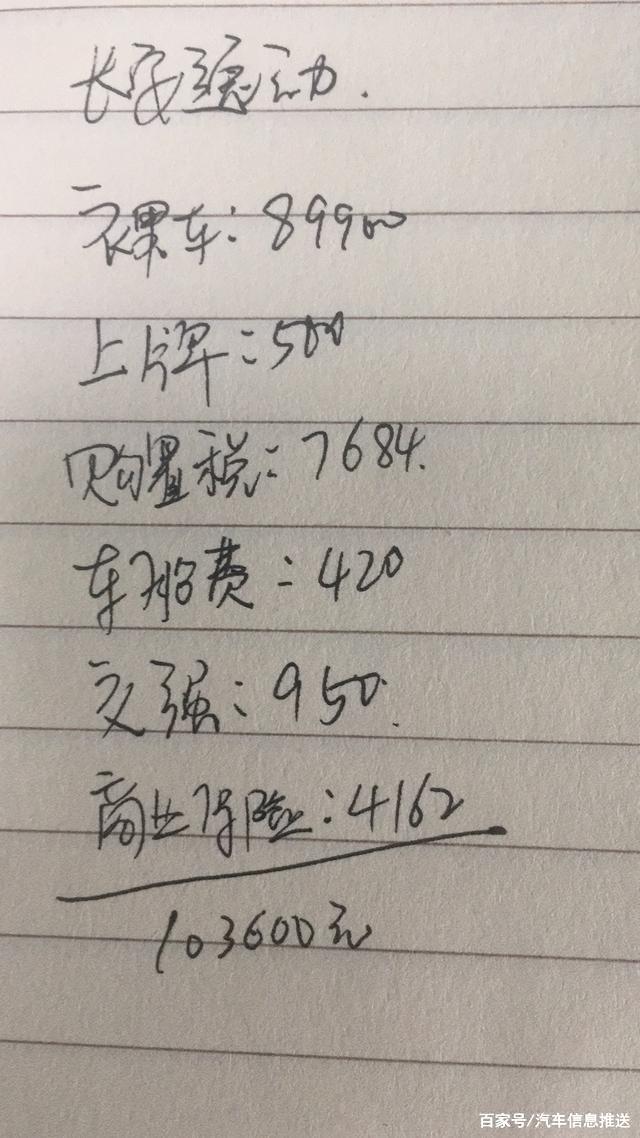 长安逸动.
裸车:89900
上牌:500
购置税:7684.
车船费:420
交强:950.
商业保险:4162
103600元
百家号/汽车信息推送